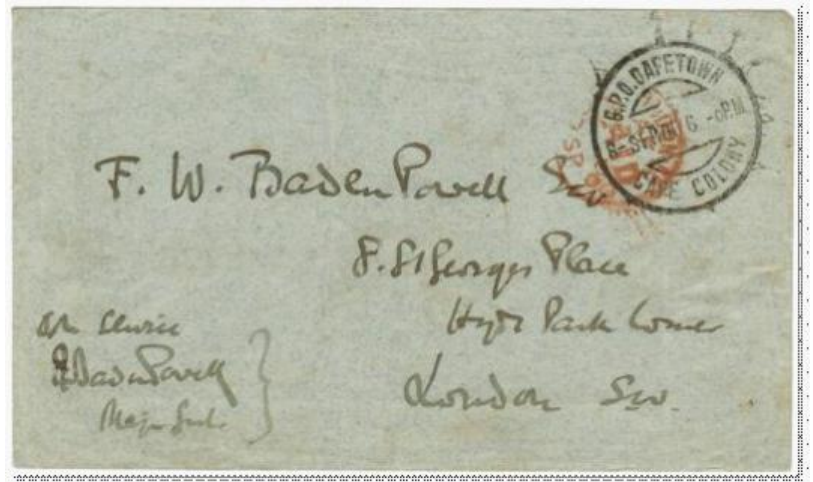 G.P.O. CAPETOWN
6 - PM
CAPE COLONY
F. W. Baden Powell
8. St Georges Place
Hyde Park Corner
London SW.
On Service
BadenPowell
Major Genl.